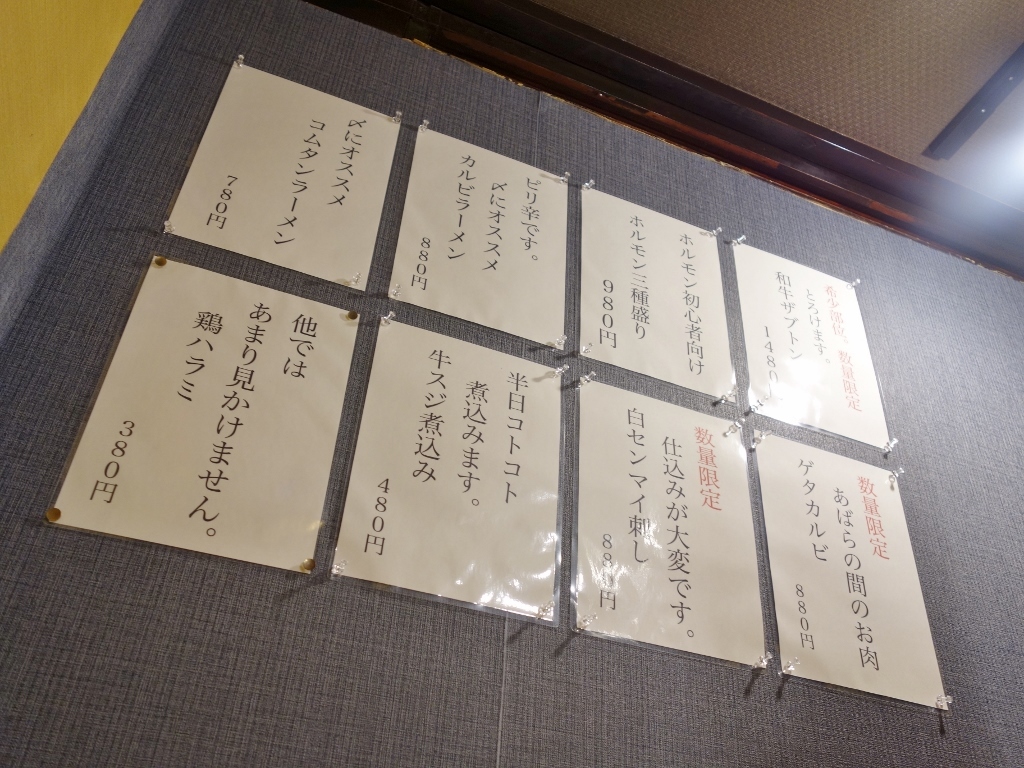 希少部位。数量限定
とろけます。
和牛ザブトン
1480
ホルモン初心者向け
ホルモン三種盛り
980円
ピリ辛です。
〆にオススメ
カルビラーメン
880円
〆にオススメ
コムタンラーメン
780円
数量限定
あばらの間のお肉
ゲタカルビ
880円
数量限定
仕込みが大変です。
白センマイ刺し
880円
半日コトコト
煮込みます。
牛スジ煮込み
480円
他では
あまり見かけません。
鶏ハラミ
380円